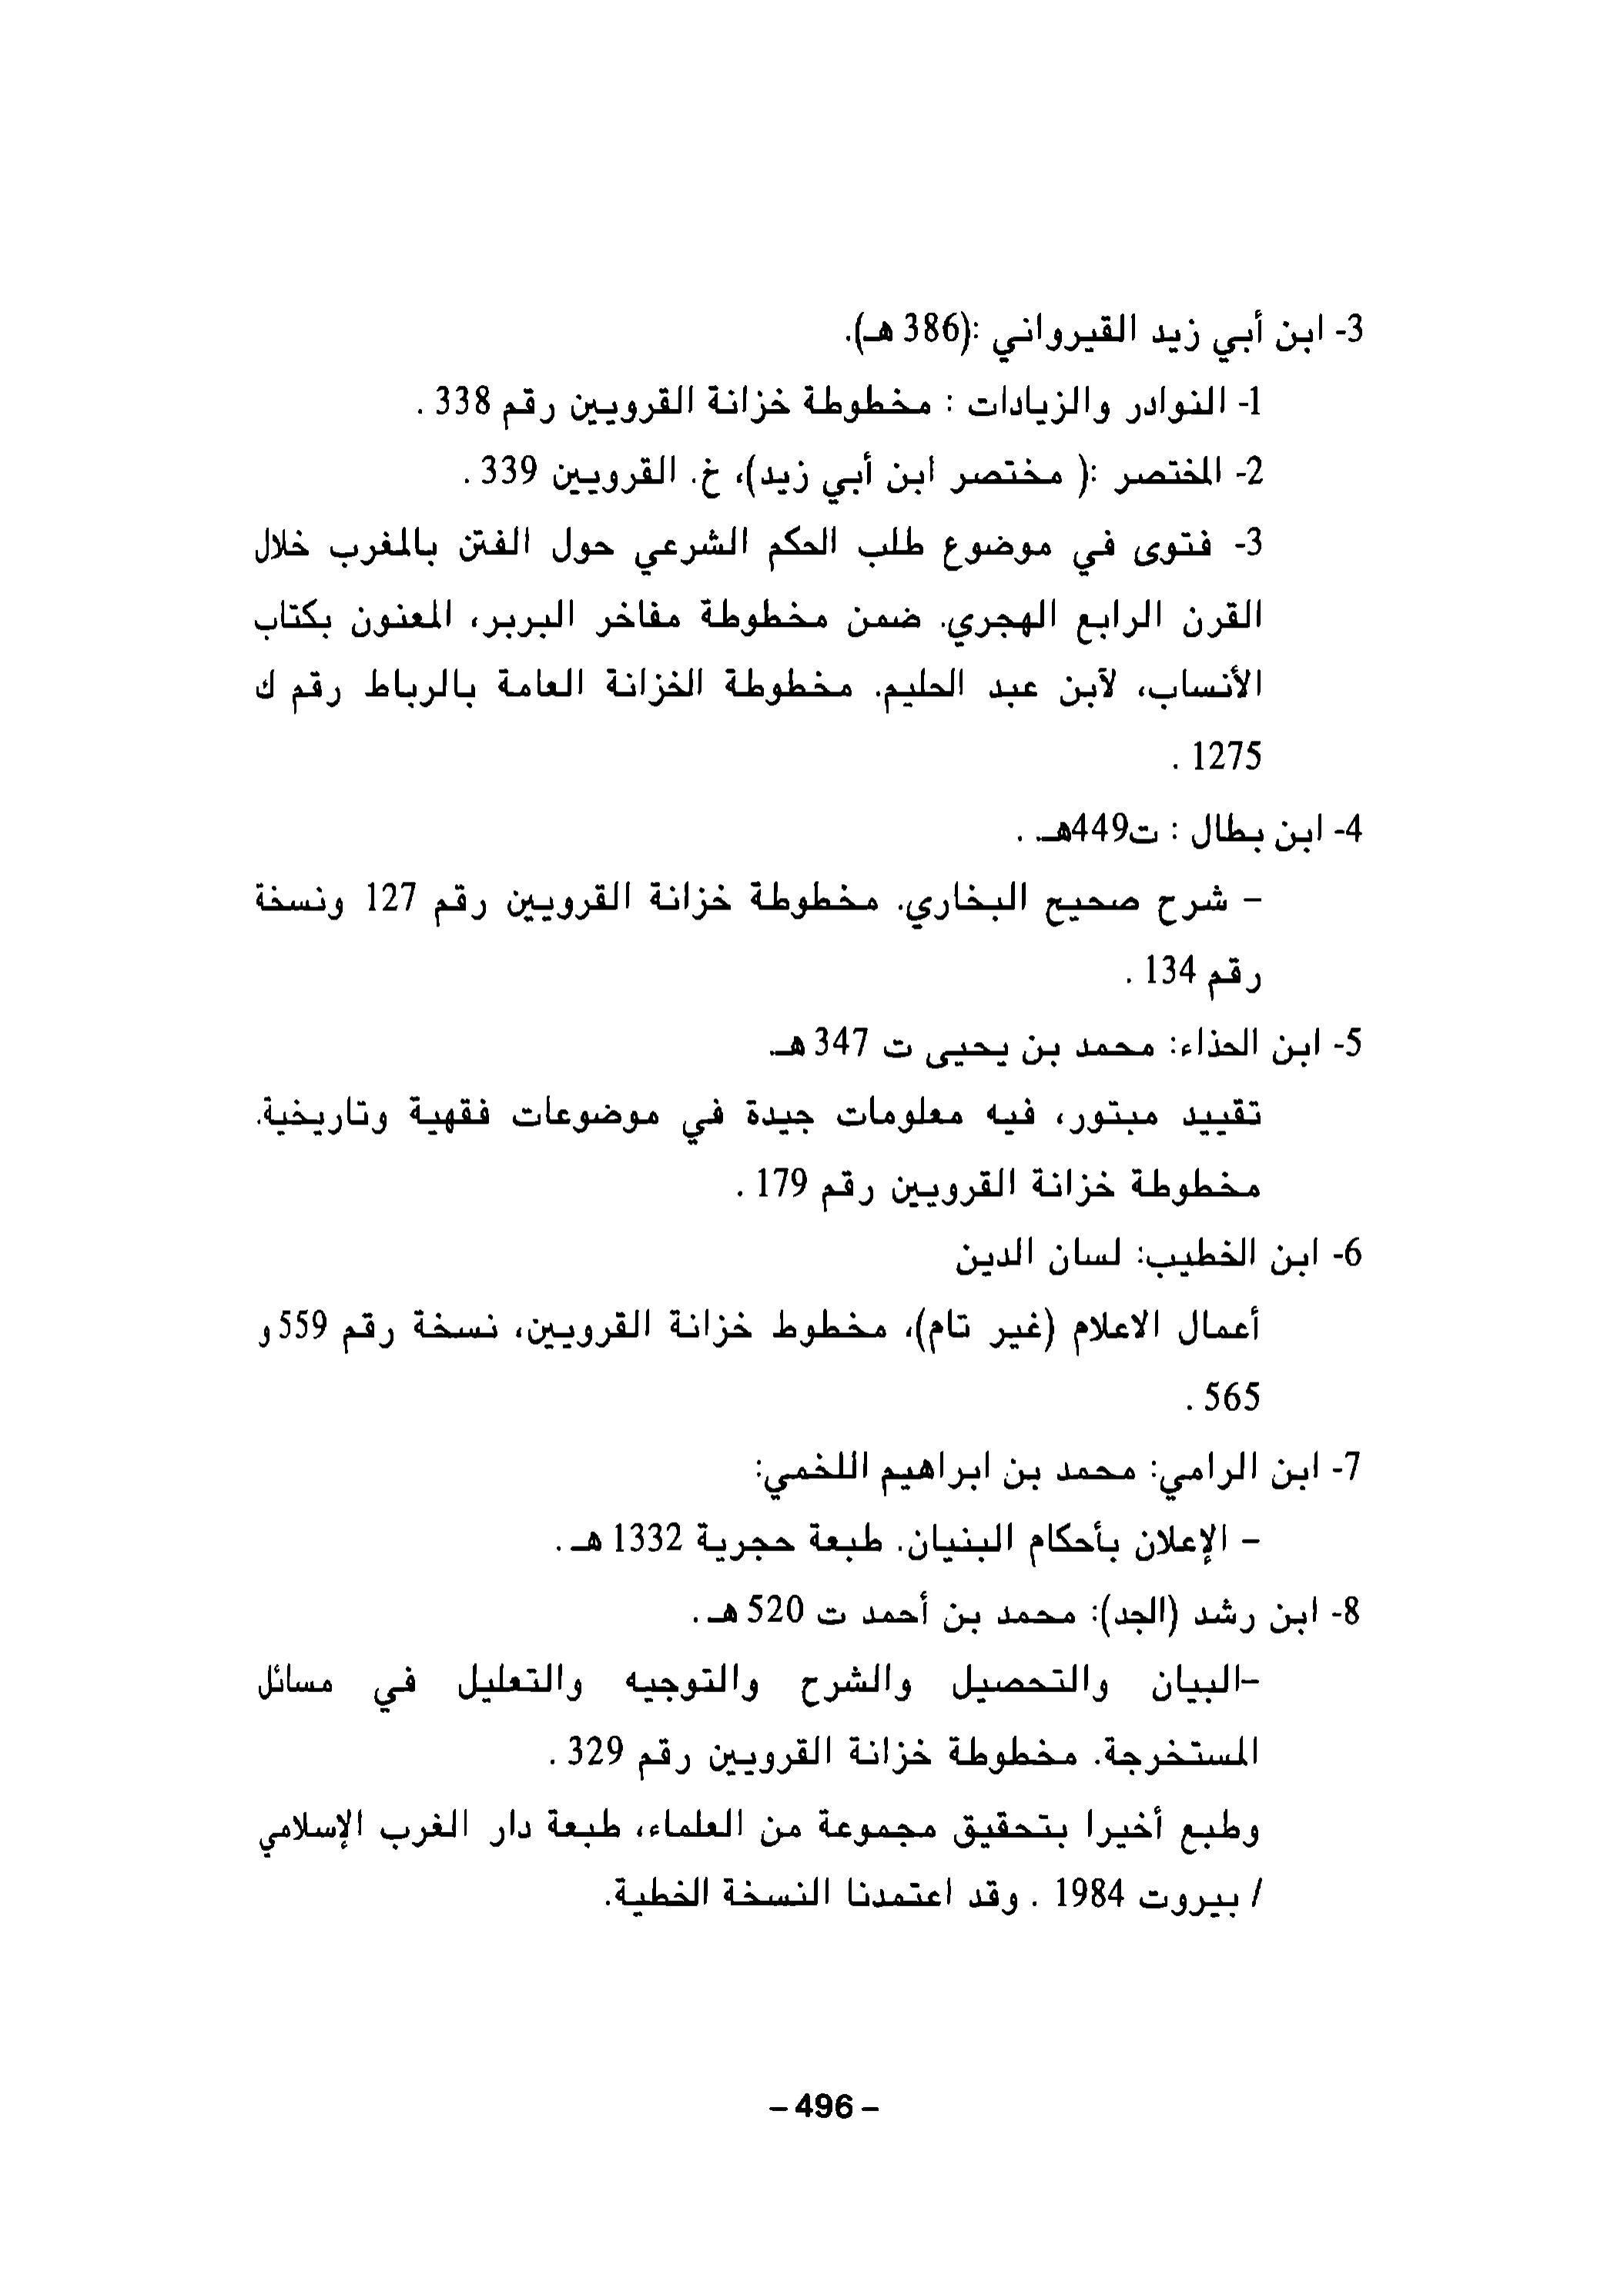 3- ابن أبي زيد القيرواني :(386 هـ).
1- النوادر والزيادات : مخطوطة خزانة القرويين رقم 338 .
2- المختصر :( مختصر ابن أبي زيد)، خ. القرويين 339 .
3- فتوى في موضوع طلب الحكم الشرعي حول الفتن بالمغرب خلال
القرن الرابع الهجري. ضمن مخطوطة مفاخر البربر، المعنون بكتاب
الأنساب، لآبن عبد الحليم. مخطوطة الخزانة العامة بالرباط رقم ك
1275 .
4- ابن بطال : ت449هـ. .
– شرح صحيح البخاري. مخطوطة خزانة القرويين رقم 127 ونسخة
رقم 134 .
5- ابن الحذاء: محمد بن يحيى ت 347 هـ.
تقييد مبتور، فيه معلومات جيدة في موضوعات فقهية وتاريخية.
مخطوطة خزانة القرويين رقم 179 .
6- ابن الخطيب: لسان الدين
أعمال الاعلام (غير تام)، مخطوط خزانة القرويين، نسخة رقم 559 و
565 .
7- ابن الرامي: محمد بن ابراهيم اللخمي:
– الإعلان بأحكام البنيان. طبعة حجرية 1332 هـ .
8- ابن رشد (الجد): محمد بن أحمد ت 520 هـ .
–البيان والتحصيل والشرح والتوجيه والتعليل في مسائل
المستخرجة. مخطوطة خزانة القرويين رقم 329 .
وطبع أخيرا بتحقيق مجموعة من العلماء، طبعة دار الغرب الإسلامي
/ بيروت 1984 . وقد اعتمدنا النسخة الخطية.
– 496 –